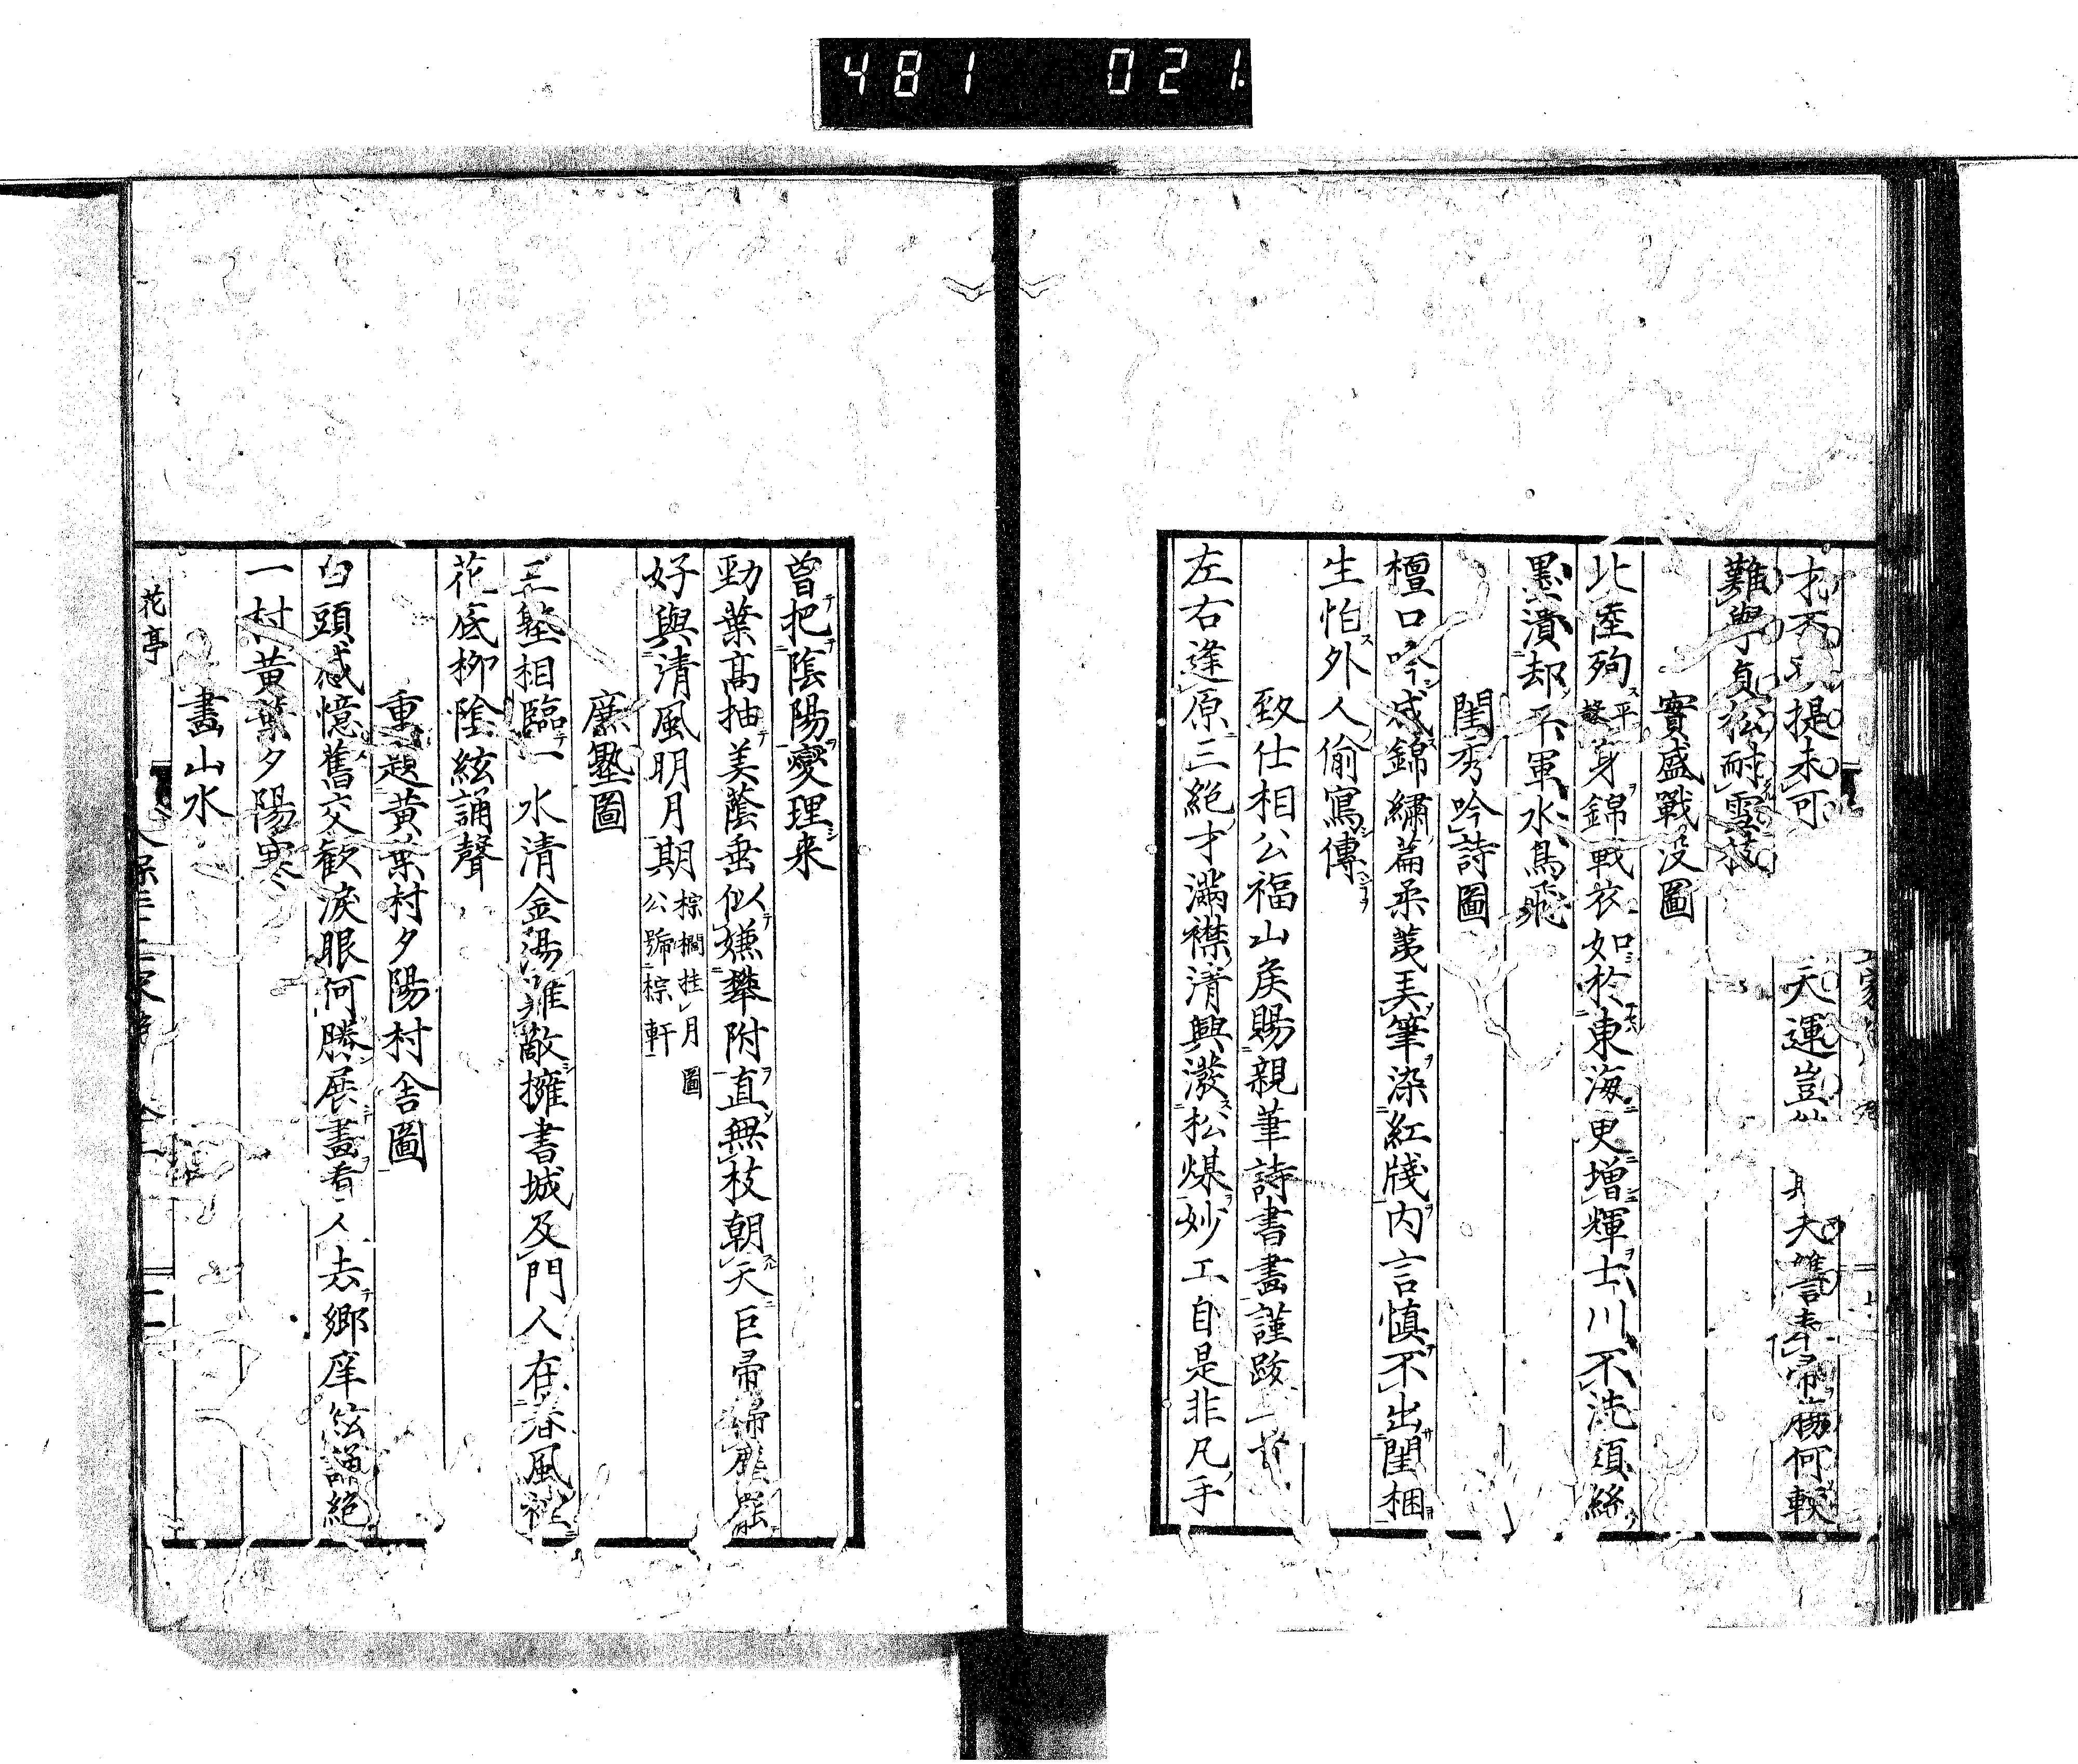 481 021
才 提未可 天運豈 夫讐 帚 何輭
難學貞松耐雪枝
實盛戰没圖
北陸殉 平聲 身錦戰衣如於東海更增輝士川不洗須絲
墨潰却平軍水鳥飛
閨秀吟詩圖
檀口吟成錦繡篇柔荑美筆染紅牋内言慎不出閨梱
生怕外人偷寫傳
致仕相公福山矦賜親筆詩書畫謹跋
左右逢原三絶才滿襟清興潑松煤妙工自是非凡手
曾把陰陽燮理来
勁葉高抽美蔭垂似嫌攀附直無枝朝天巨帚
好與清風明月期 棕櫚挂月圖 公號棕軒
廉塾圖
三壑相臨一水清金湯難敵擁書城及門人在春風裡
花底柳陰絃誦聲
重題黃葉村夕陽村舎圖
白頭感憶舊交歡淚眼何勝展畫看人去鄉庠絃誦絕
一村黃葉夕陽寒
畫山水
花亭